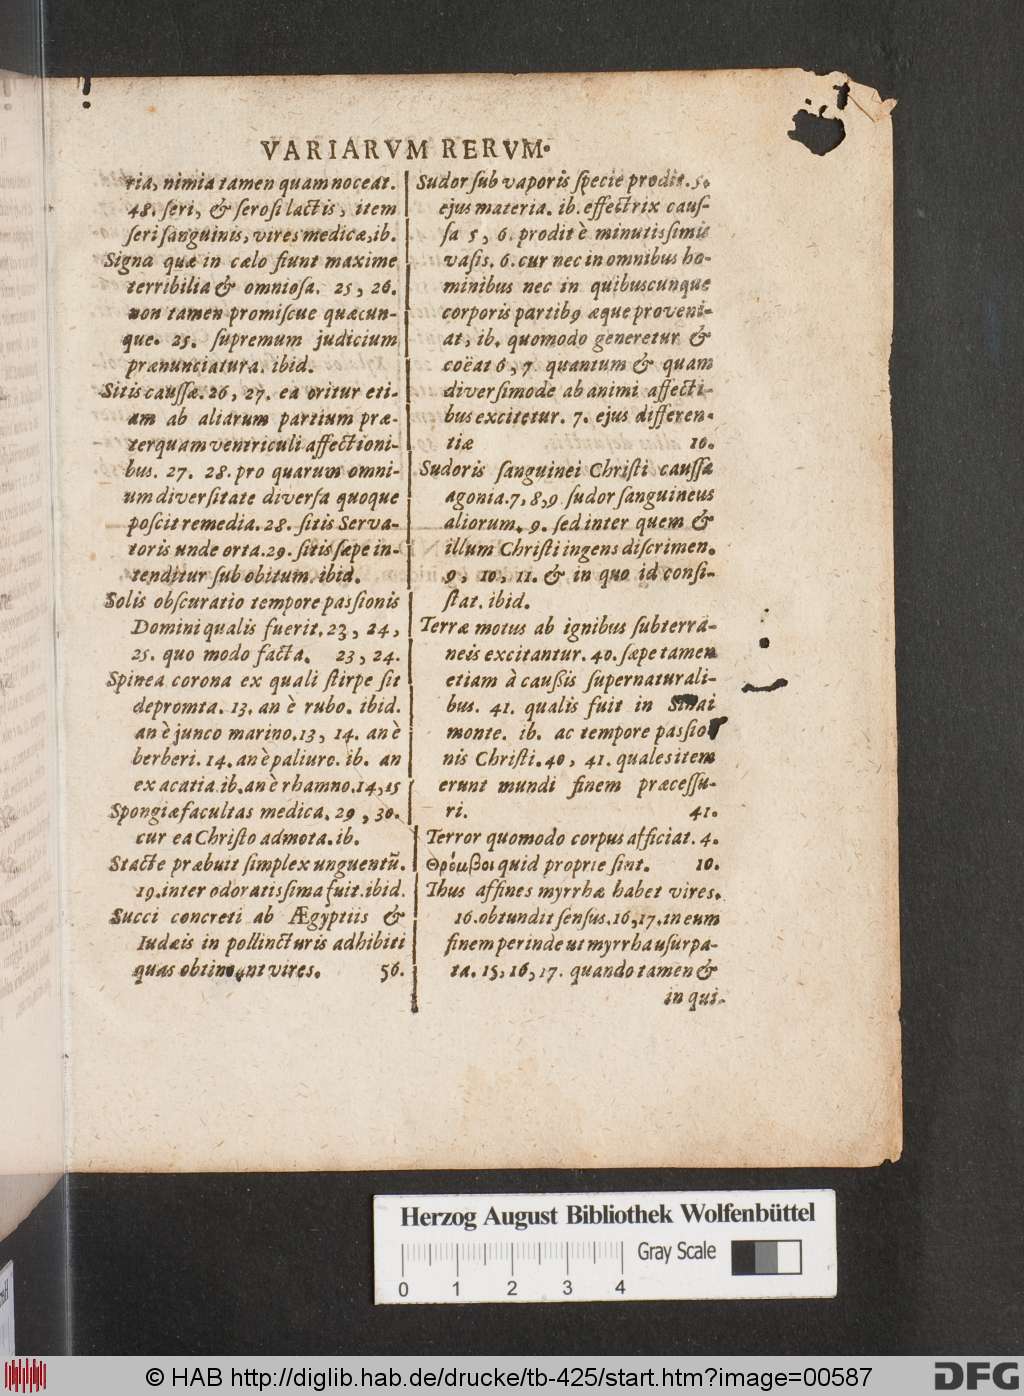 VARIARVM RERVM.
ria, nimia tamen quam noceat.
48. ſeri, & ſeroſi lactis, item
ſeri ſanguinis, vires medicæ, ib.
Signa quæ in cælo fiunt maxime
terribilia & omnioſa. 25, 26.
non tamen promiſcue quæcun-
que. 25. ſupremum judicium
prænunciatura. ibid.
Sitis cauſſæ. 26, 27. ea oritur eti-
am ab aliarum partium præ-
terquam ventriculi affectioni-
bus. 27. 28. pro quarum omni-
um diverſitate diverſa quoque
poſcit remedia. 28. ſitis Serva-
toris unde orta. 29. ſitis ſæpe in-
tenditur ſub obitum. ibid.
Solis obſcuratio tempore paſsionis
Domini qualis fuerit. 23, 24,
25. quo modo facta. 23, 24.
Spinea corona ex quali ſtirpe ſit
depromta. 13. an è rubo. ibid.
an è junco marino. 13, 14. an è
berberi. 14. an è paliuro. ib. an
ex acatia. ib. an è rhamno. 14, 15
Spongiæ facultas medica. 29, 30.
cur ea Chriſto admota. ib.
Stacte præbuit ſimplex unguentũ.
19. inter odoratiſsima fuit. ibid.
Succi concreti ab Ægyptiis &
Iudæis in pollincturis adhibiti
quas obtineant vires. 56.
Sudor ſub vaporis ſpecie prodit. 5.
ejus materia. ib. effectrix cauſ-
ſa 5, 6. prodit è minutiſsimis
vaſis. 6. cur nec in omnibus ho-
minibus nec in quibuscunque
corporis partibꝰ æque proveni-
at, ib. quomodo generetur &
coëat 6, 7. quantum & quam
diverſimode ab animi affecti-
bus excitetur. 7. ejus differen-
tiæ 10.
Sudoris ſanguinei Chriſti cauſſa
agonia. 7, 8, 9 ſudor ſanguineus
aliorum. 9. ſed inter quem &
illum Chriſti ingens diſcrimen.
9, 10, 11. & in quo id conſi-
ſtat. ibid.
Terræ motus ab ignibus ſubterrã-
neis excitantur. 40. ſæpe tamen
etiam à cauſsis ſupernaturali-
bus. 41. qualis fuit in Sinai
monte. ib. ac tempore paſsio-
nis Chriſti. 40, 41. quales item
erunt mundi finem præceſſu-
ri. 41.
Terror quomodo corpus afficiat. 4.
Θρόμβοι quid proprie ſint. 10.
Thus affines myrrhæ habet vires.
16. obtundit ſenſus. 16, 17. in eum
finem perinde ut myrrha uſurpa-
ta. 15, 16, 17. quando tamen &
in qui-
Herzog August Bibliothek Wolfenbüttel
Gray Scale
0 1 2 3 4
© HAB http://diglib.hab.de/drucke/tb-425/start.htm?image=00587
DFG